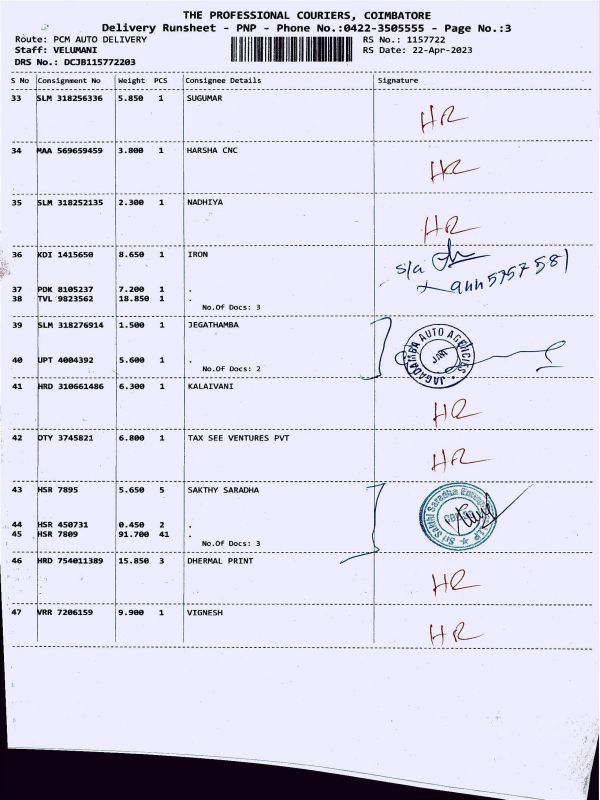 THE PROFESSIONAL COURIERS, COIMBATORE
Delivery Runsheet - PNP - Phone No.:0422-3505555 - Page No.:3
Route: PCM AUTO DELIVERY RS No.: 1157722
Staff: VELUMANI RS Date: 22-Apr-2023
DRS No.: DCJB115772203
S No Consignment No Weight PCS Consignee Details Signature
33 SLM 318256336 5.850 1 SUGUMAR HR
34 MAA 569659459 3.800 1 HARSHA CNC HR
35 SLM 318252135 2.300 1 NADHIYA HR
36 KDI 1415650 8.650 1 IRON s/a
37 PDK 8105237 7.200 1 .
38 TVL 9823562 18.850 1 .
No.Of Docs: 3
39 SLM 318276914 1.500 1 JEGATHAMBA JAGADAMBA AUTO AGENCIES
40 UPT 4004392 5.600 1 .
No.Of Docs: 2
41 HRD 310661486 6.300 1 KALAIVANI HR
42 OTY 3745821 6.800 1 TAX SEE VENTURES PVT HR
43 HSR 7895 5.650 5 SAKTHY SARADHA Sri Sakthi Saradha
44 HSR 450731 0.450 2 .
45 HSR 7809 91.700 41 .
No.Of Docs: 3
46 HRD 754011389 15.850 3 DHERMAL PRINT HR
47 VRR 7206159 9.900 1 VIGNESH HR